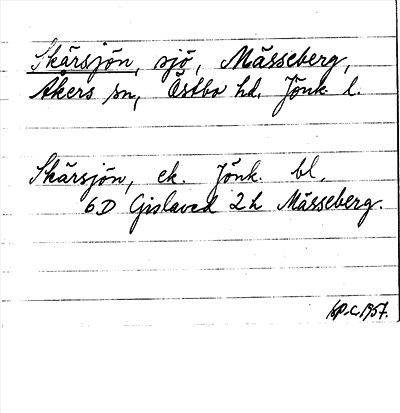 Skärsjön, sjö, Mässeberg,
Åkers sn, Östbo hd. Jönk. l.
Skärsjön, ek. Jönk. bl.
6D Gislaved 2h Mässeberg.
1957.